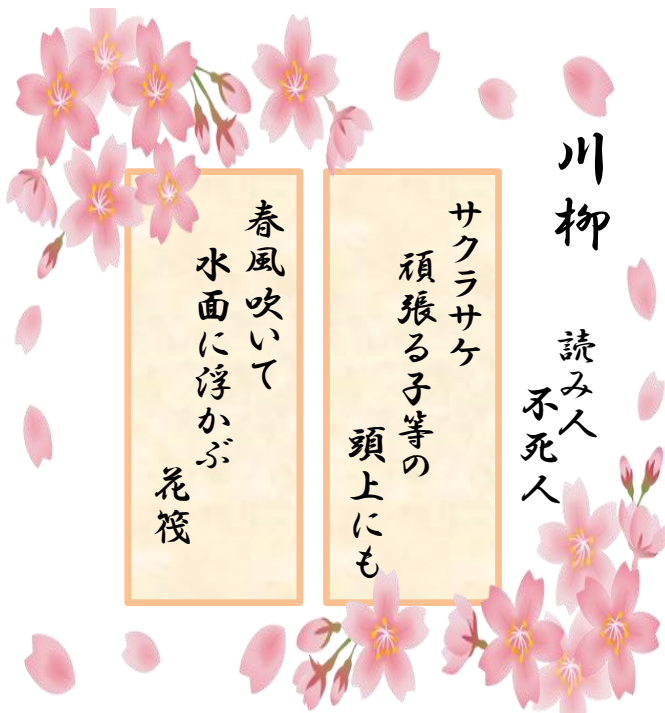 川柳
読み人
不死人
サクラサケ
頑張る子等の
頭上にも
春風吹いて
水面に浮かぶ
花筏